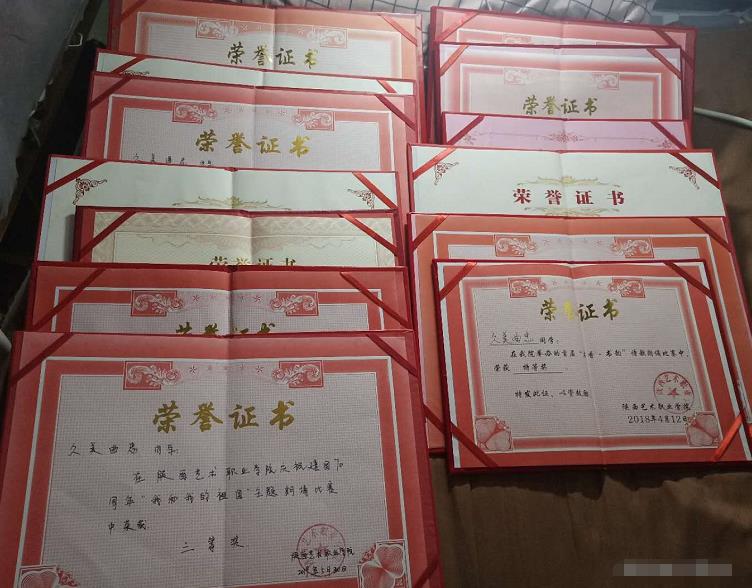 荣誉证书
荣誉证书
荣誉证书
荣誉证书
荣誉证书
久美曲忠 同学:
在陕西艺术职业学院庆祝建国70
周年“我和我的祖国”主题朗诵比赛
中荣获
二等奖
陕西艺术职业学院
2019年5月30日
荣誉证书
荣誉证书
荣誉证书
久美曲忠 同学:
在我院举办的首届“ 香·书韵”诗歌朗诵比赛中,
荣获 特等奖
特发此证,以资鼓励
陕西艺术职业学院
2018年4月12日